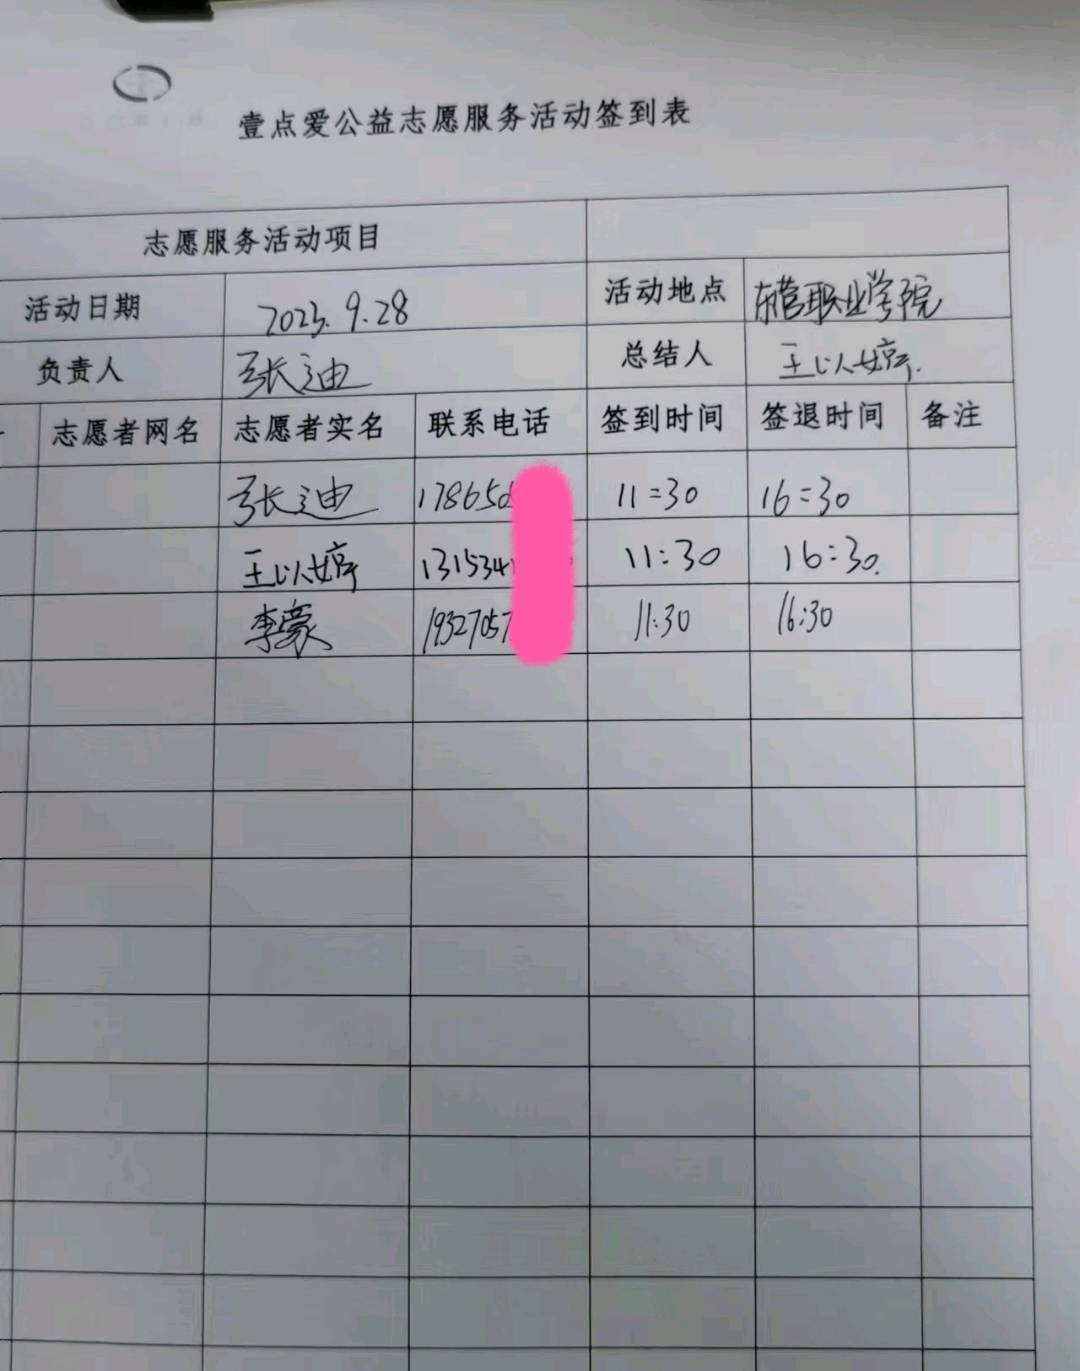 壹点爱公益志愿服务活动签到表
志愿服务活动项目
活动日期 2023.9.28 活动地点 东营职业学院
负责人 张迪 总结人 王以婷
志愿者网名 志愿者实名 联系电话 签到时间 签退时间 备注
张迪 17865 11:30 16:30
王以婷 131534 11:30 16:30.
李豪 19327057 11:30 16:30